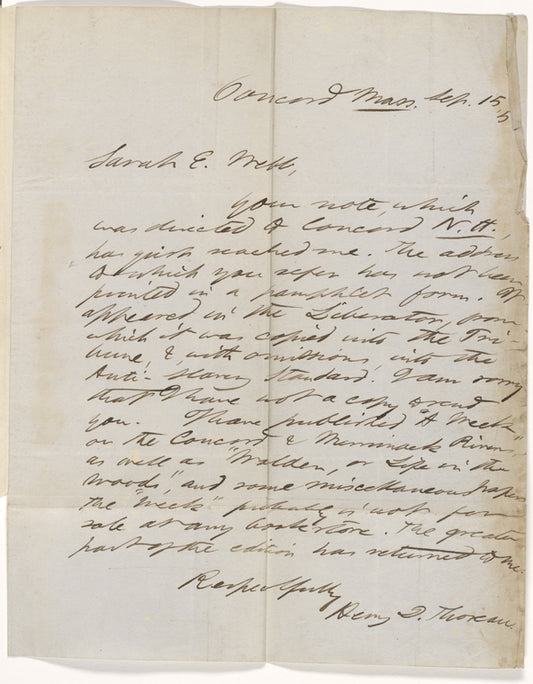 Concord Mass. Sep. 15,
Sarah E. Webb,
Your note, which
was directed to Concord N. H.,
has just reached me. The address
to which you refer has not been
printed in a pamphlet form. It
appeared in the Liberator, from
which it was copied into the Tri-
bune, & with omissions, into the
Anti-Slavery Standard. I am sorry
that I have not a copy to send
you. I have published "A Week
on the Concord & Merrimack Rivers,"
as well as "Walden, or Life in the
Woods," and some miscellaneous papers.
The "Week" probably is not for
sale at any bookstore. The greater
part of the edition has returned to me.
Respectfully
Henry D. Thoreau.